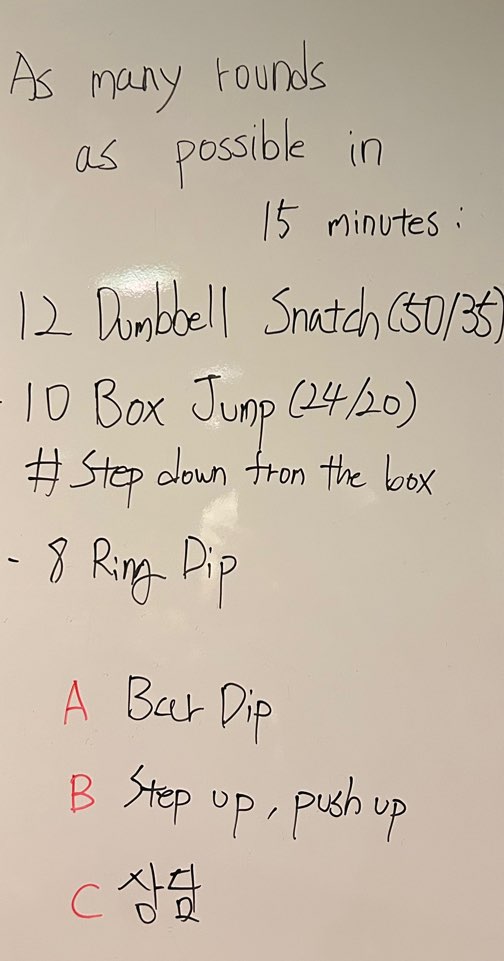 As many rounds
as possible in
15 minutes :
12 Dumbbell Snatch (50/35)
- 10 Box Jump (24/20)
# Step down from the box
- 8 Ring Dip
A Bar Dip
B Step up, push up
C 상담